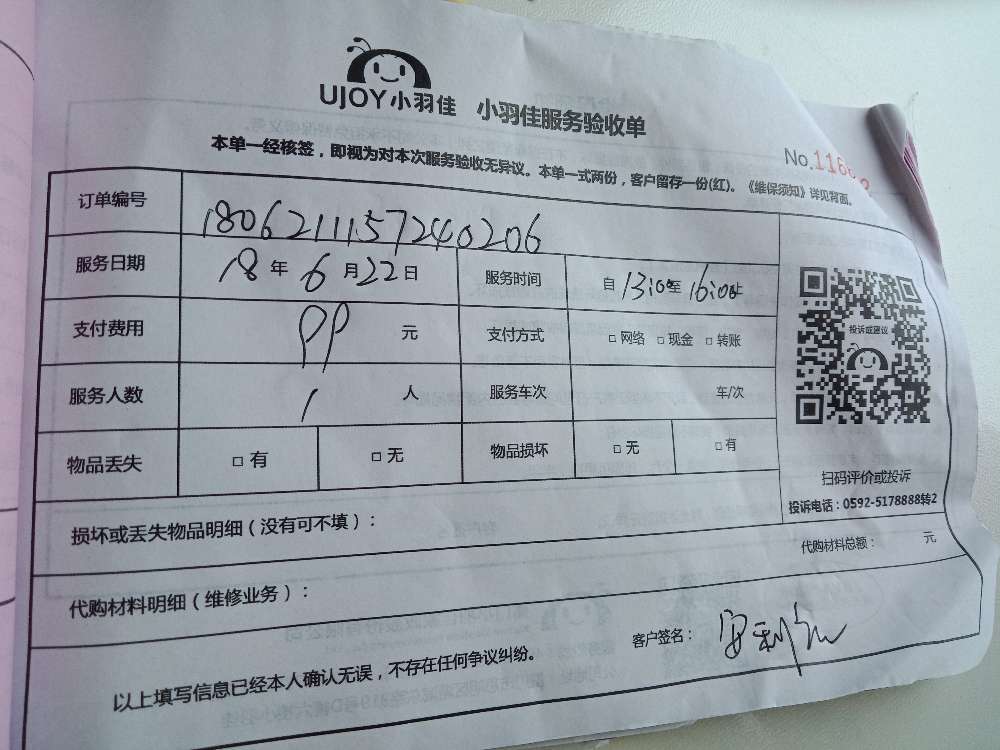 UJOY小羽佳 小羽佳服务验收单
No.116
本单一经核签，即视为对本次服务验收无异议。本单一式两份，客户留存一份(红)。《维保须知》详见背面。
订单编号 180621115724020​6
服务日期 18 年 6 月 22 日 服务时间 自 13:00 至 16:00
支付费用 99 元 支付方式 □ 网络 □ 现金 □ 转账
服务人数 1 人 服务车次 车/次
物品丢失 □ 有 □ 无 物品损坏 □ 无 □ 有
投诉或建议
扫码评价或投诉
投诉电话：0592-5178888转2
损坏或丢失物品明细（没有可不填）：
代购材料总额： 元
代购材料明细（维修业务）：
客户签名：
以上填写信息已经本人确认无误，不存在任何争议纠纷。